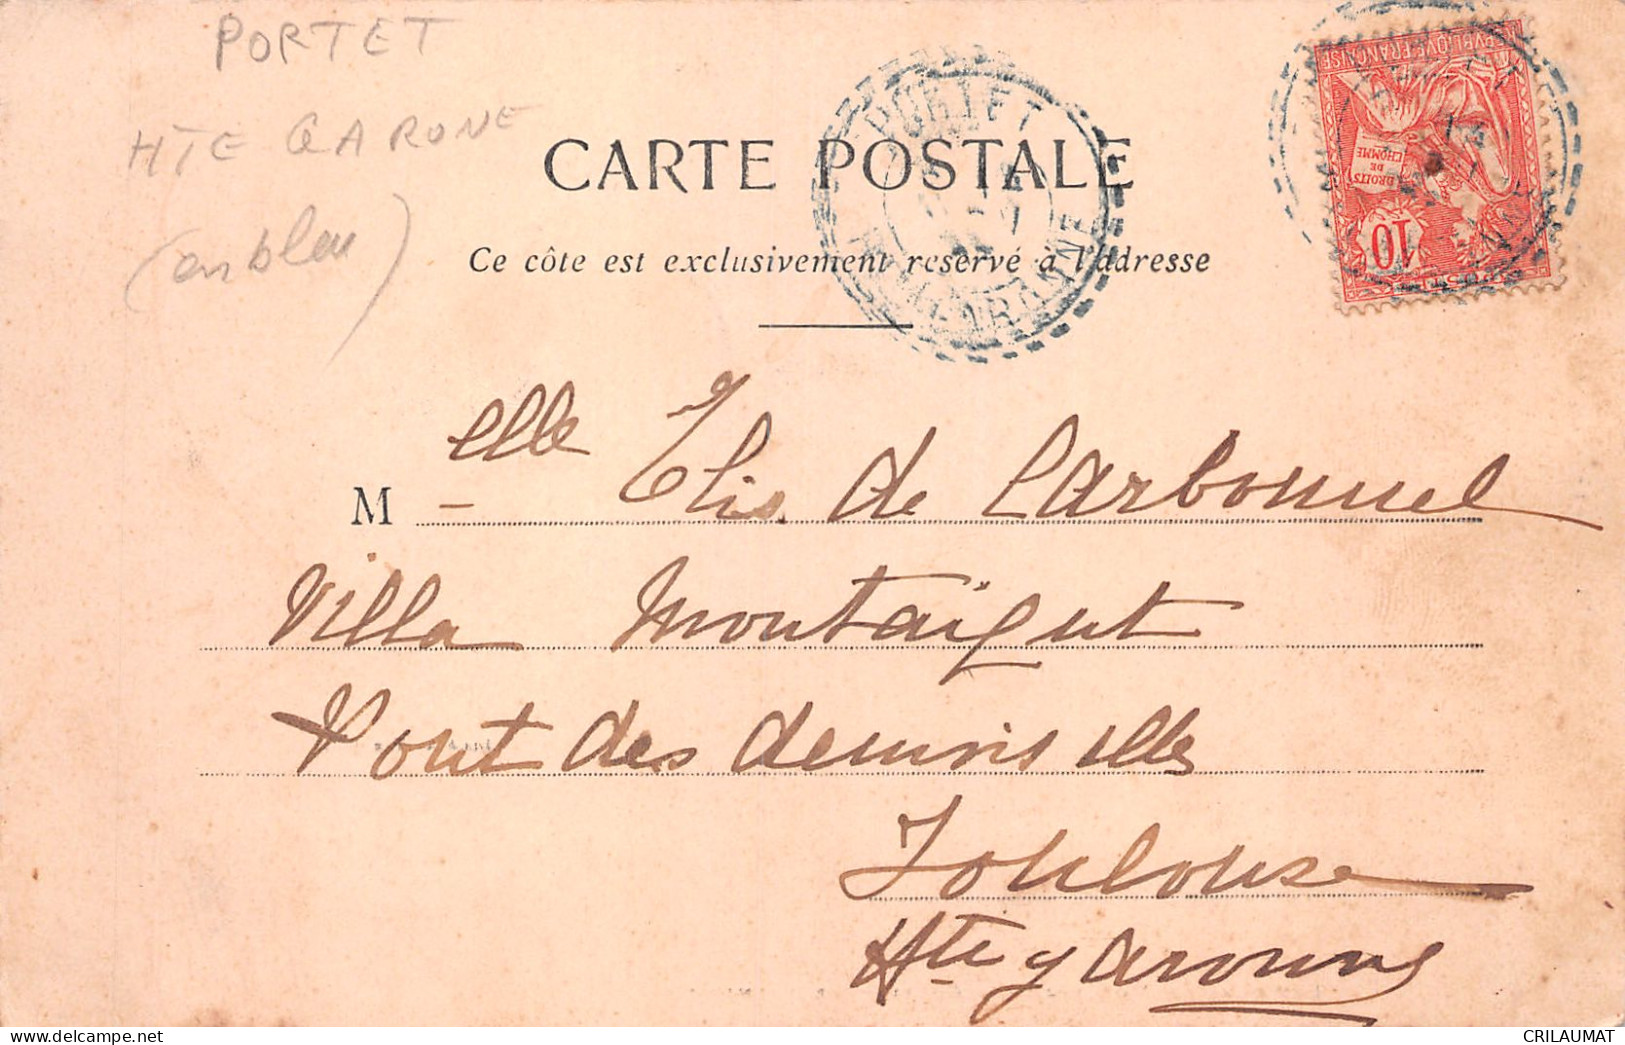 PORTET
HTE GARONE
(en bleu)
CARTE POSTALE
Ce côté est exclusivement réservé à l'adresse
M elle Elis de Carbonnel
Villa Montaigut
Pont des demoiselles
Toulouse
Hte garonne
REPVBLIQVE FRANÇAISE
DROITS DE L'HOMME
10
POSTES
PORTET
GARONNE
CRILAUMAT